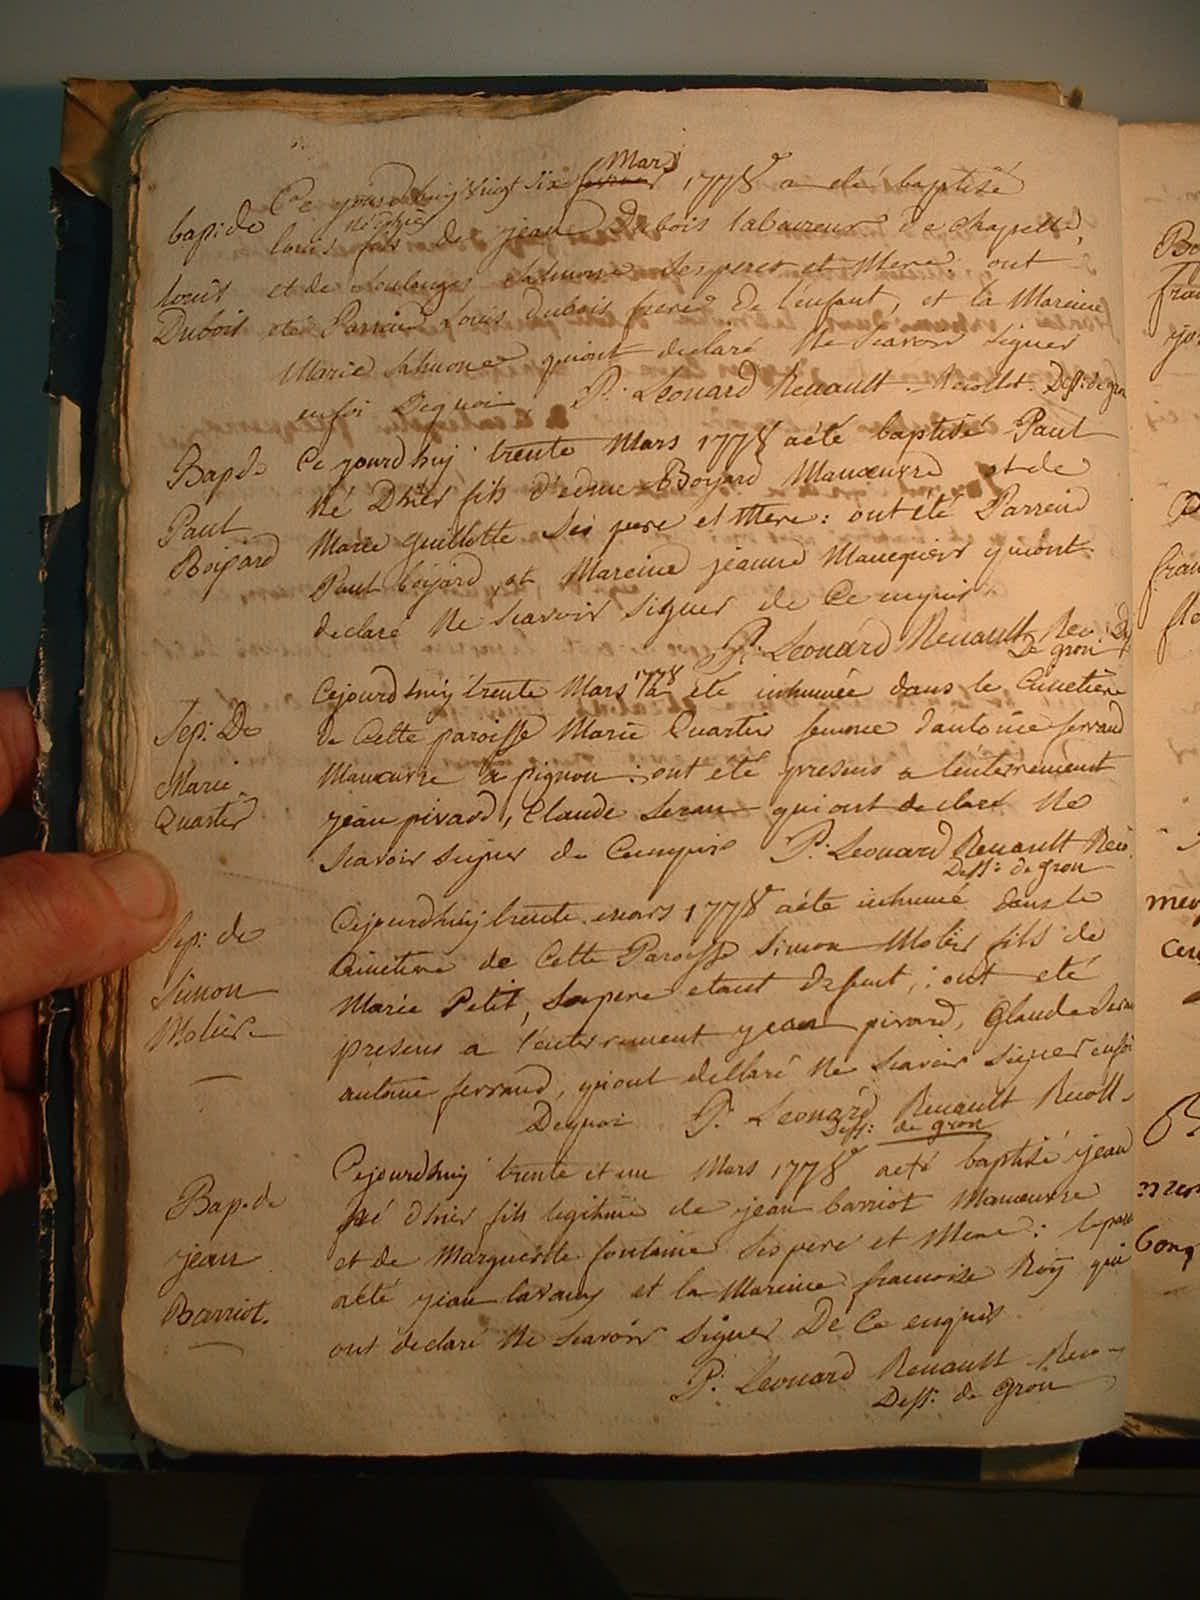 Ce jourdhuij vingt six fevrier Mars 1778 a été baptisé
bap: de
né d'hier
louis fils de jean Dubois laboureur de chapelle,
louis
et de Solanges sesperes et Mere: ont
Dubois
été Parrein Louis dubois frere de l'enfant, et la Mareine
Marie quiont declaré Ne Scavoir Signer
enfoi Dequoi P. Leonard Renault. Recollet. Dess: de gron
Bap: de
Ce jourdhuij trente Mars 1778 aété baptisé Paul
Paul
Né D'hier fils d'edme Boyard Manoeuvre et de
Boijard
Marie guillotte Ses pere et Mere: ont été Parrein
Paul boijard, et Mareine jeanne quiont
declaré Ne Scavoir Signer de Ce enquis
P. Leonard Renault Rec: De
De gron
Cejourdhuij trente Mars 1778 a été inhumée dans le Cimetiere
Sep: De
de Cette paroisse Marie Quartier femme dantoine ferrand
Marie
Manoeuvre a pignou: ont été presens a l'enterrement
Quartier
jean pivard, Claude qui ont declaré Ne
Scavoir signer de Ce enquis P. Leonard Renault Rec:
Dess: de gron
Cejourdhuij trente mars 1778 aété inhumé dans le
Sep: de
Cimetiere de Cette Paroisse Simon Molier fils de
Simon
Marie Petit, Sonpere etant Defunt,: ont eté
Molier
presens a l'enterrement jean pivard, Claude
antoine ferrand, quiont declaré Ne Scavoir Signer enfoi
Dequoi P. Leonard Renault Recoll.
Dess: de gron
Cejourdhuij trente et un Mars 1778 aeté baptisé jean
Bap. de
Né d'hier fils legitime de jean barriot Manoeuvre
jean
et de Marguerite fontaine Ses pere et Mere: le par
Barriot.
aété jean et la Mareine francoise Roy qui
ont declaré Ne Scavoir Signer De Ce enquis
P. Leonard Renault Rec
Dess: de gron